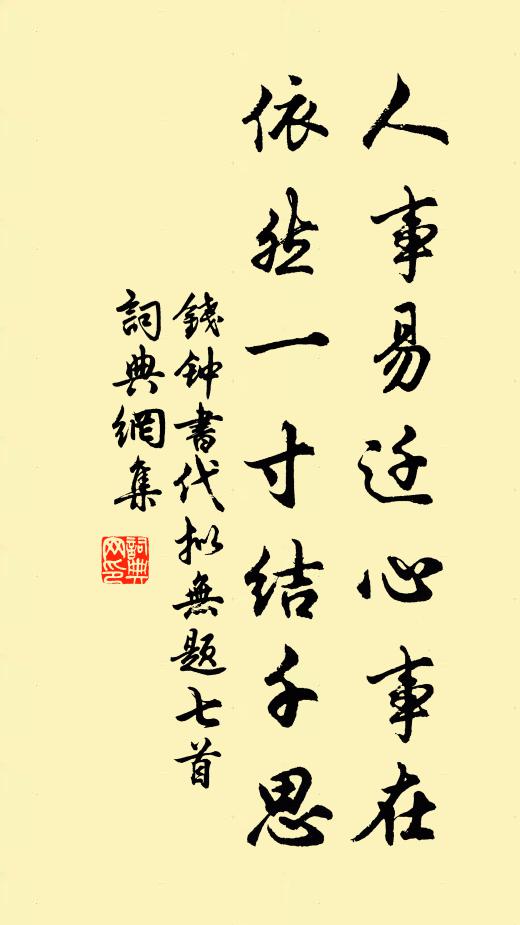 人事易迁心事在
依然一寸结千思
錢钟書代拟無题七首
詞典網集
詞典网印